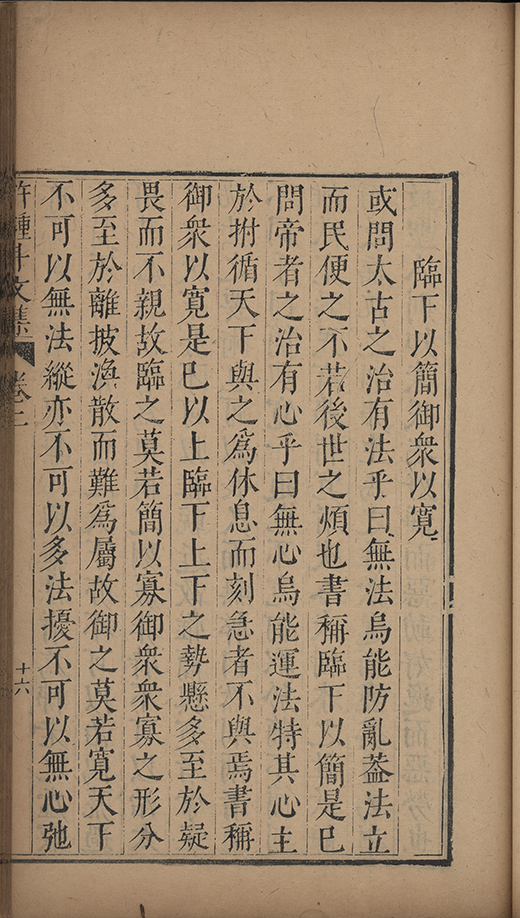 臨下以簡御衆以寬
或問太古之治有法乎曰無法烏能防亂葢法立
而民便之不若後世之煩也書稱臨下以簡是已
問帝者之治有心乎曰無心烏能運法特其心主
於拊循天下與之爲休息而刻急者不與焉書稱
御衆以寬是已以上臨下上下之勢懸多至於疑
畏而不親故臨之莫若簡以寡御衆衆寡之形分
多至於離披渙散而難爲屬故御之莫若寬天下
不可以無法縱亦不可以多法擾不可以無心弛
許鍾斗文集
卷二
十六